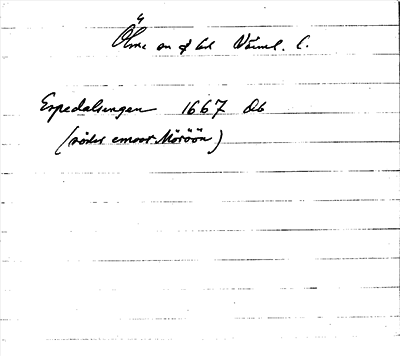 Ölme sn o hd Värml. l.
Espedalsengen 1667 Db
(söder emoot Möröön)